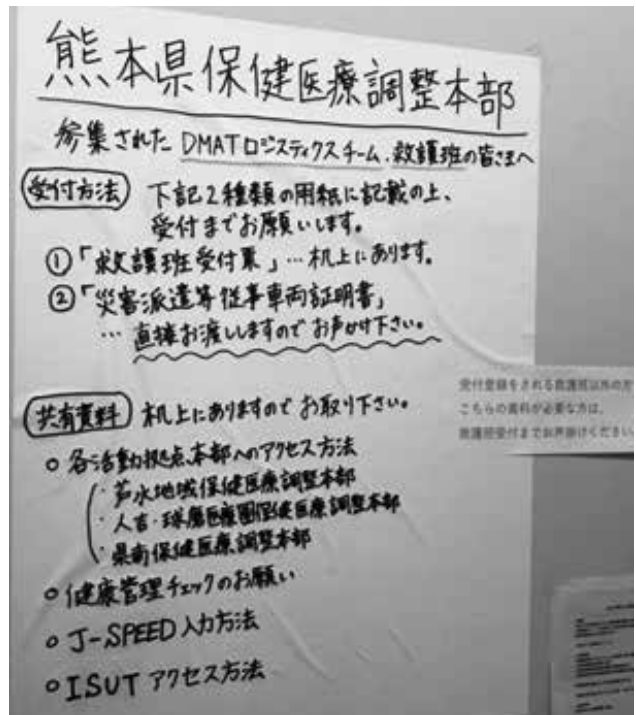 熊本県保健医療調整本部
参集された DMATロジスティクスチーム、救護班の皆さまへ
受付方法 下記2種類の用紙に記載の上、
受付までお願いします。
①「救護班受付票」…机上にあります。
②「災害派遣等従事車両証明書」
…直接お渡ししますのでお声がけ下さい。
共有資料 机上にありますのでお取り下さい。
○各活動拠点本部へのアクセス方法
・芦水地域保健医療調整本部
・人吉・球磨医療圏保健医療調整本部
・県南保健医療調整本部
○健康管理チェックのお願い
○J-SPEED入力方法
○ISUT アクセス方法
受付登録をされる救護班以外の方で
こちらの資料が必要な方は、
救護班受付までお声掛けください。